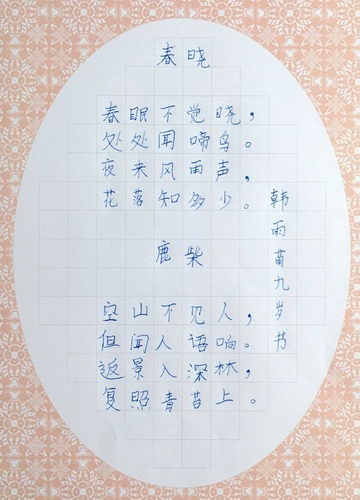 春晓
春眠不觉晓，
处处闻啼鸟。
夜来风雨声，
花落知多少。
鹿柴
空山不见人，
但闻人语响。
返景入深林，
复照青苔上。
韩雨九岁书